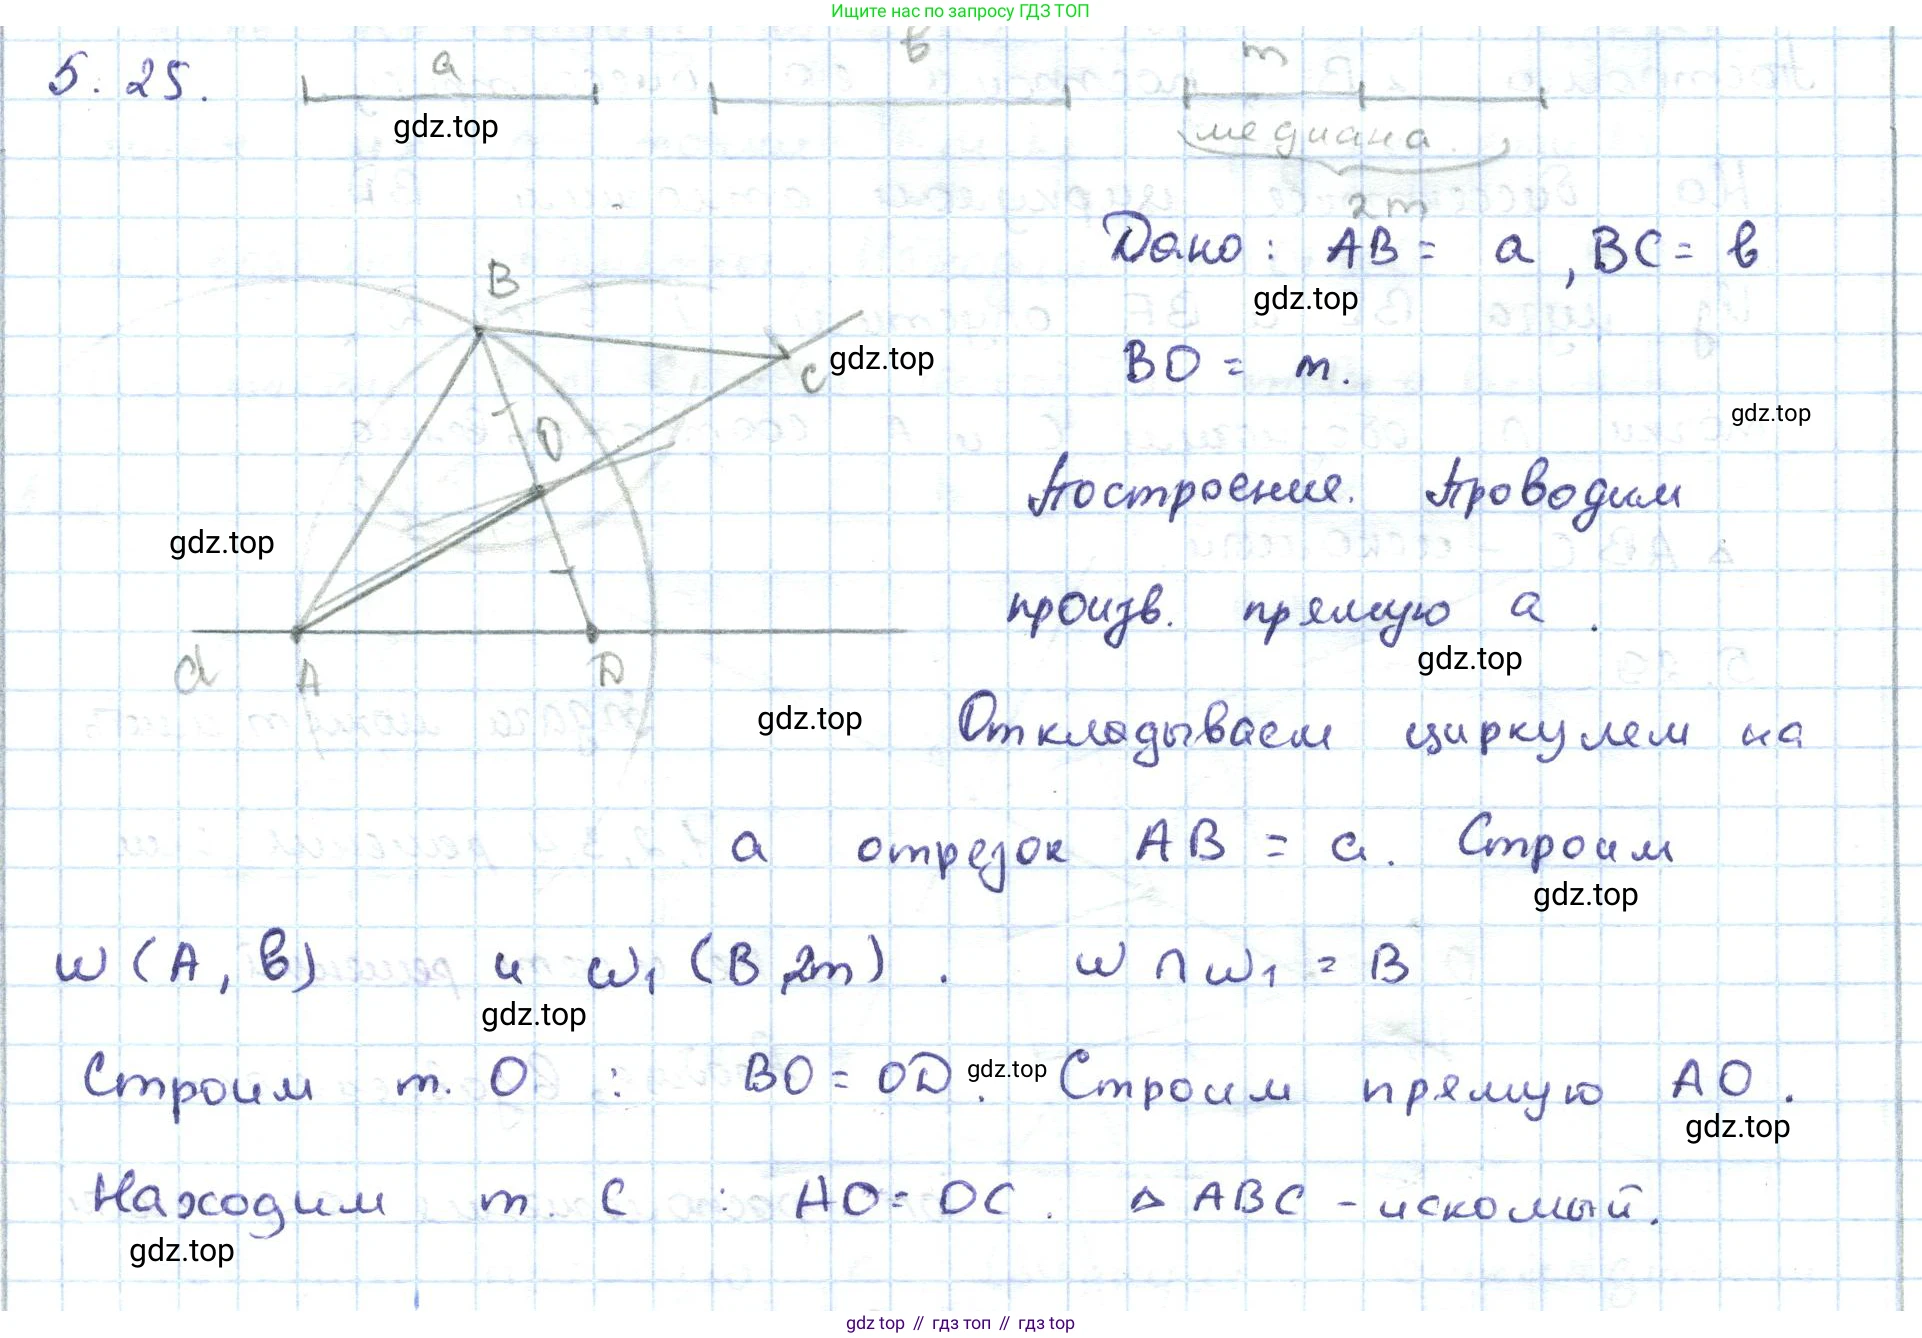 Ищите нас по запросу ГДЗ ТОП
5.25.
a
в
m
gdz.top
медиана
2m
Дано: AB = a, BC = в
gdz.top
B
BO = m.
gdz.top
C
gdz.top
O
Построение. Проводим
gdz.top
произв. прямую a.
gdz.top
d A D
gdz.top
Откладываем циркулем на
a отрезок AB = a. Строим
gdz.top
w(A, в) и w₁(B, 2m). w ∩ w₁ = B
gdz.top
Строим т. O : BO = OD. gdz.top Строим прямую AO.
gdz.top
Находим т. C : AO = OC. △ ABC - искомый.
gdz.top
gdz.top // гдз топ // gdz top